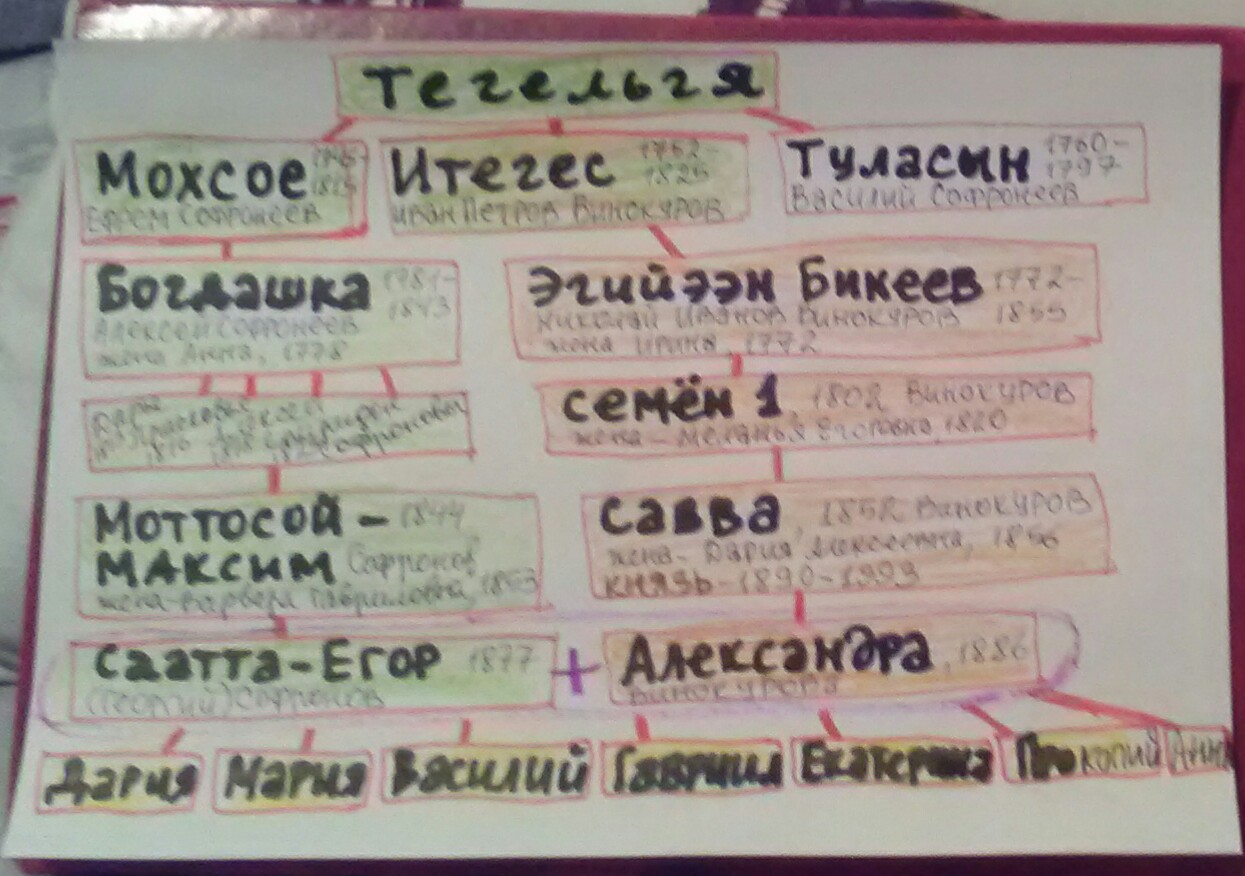 Тегельгя
Мохсое
Ефрем Софронеев
Итегес 1762-1825
Иван Петров Винокуров
Туласын 1760-1797
Василий Софронеев
Богдашка 1781-1843
Алексей Софронеев
жена Анна, 1778
Эгийээн Бикеев 1772-1855
Николай Иванов Винокуров
жена Ирина, 1772
Софроновы
Семён 1, 1802 Винокуров
жена - Меланья Егоровна, 1820
Моттосой - 1844
Максим Софронов
жена-Варвара Гавриловна, 1853
Савва, 1852 Винокуров
жена- Дария Алексеевна, 1856
князь-1890-1893
Саатта-Егор 1877
(Георгий) Софронов
+
Александра, 1886
Винокурова
Дария Мария Василий Гавриил Екатерина Прокопий Анна